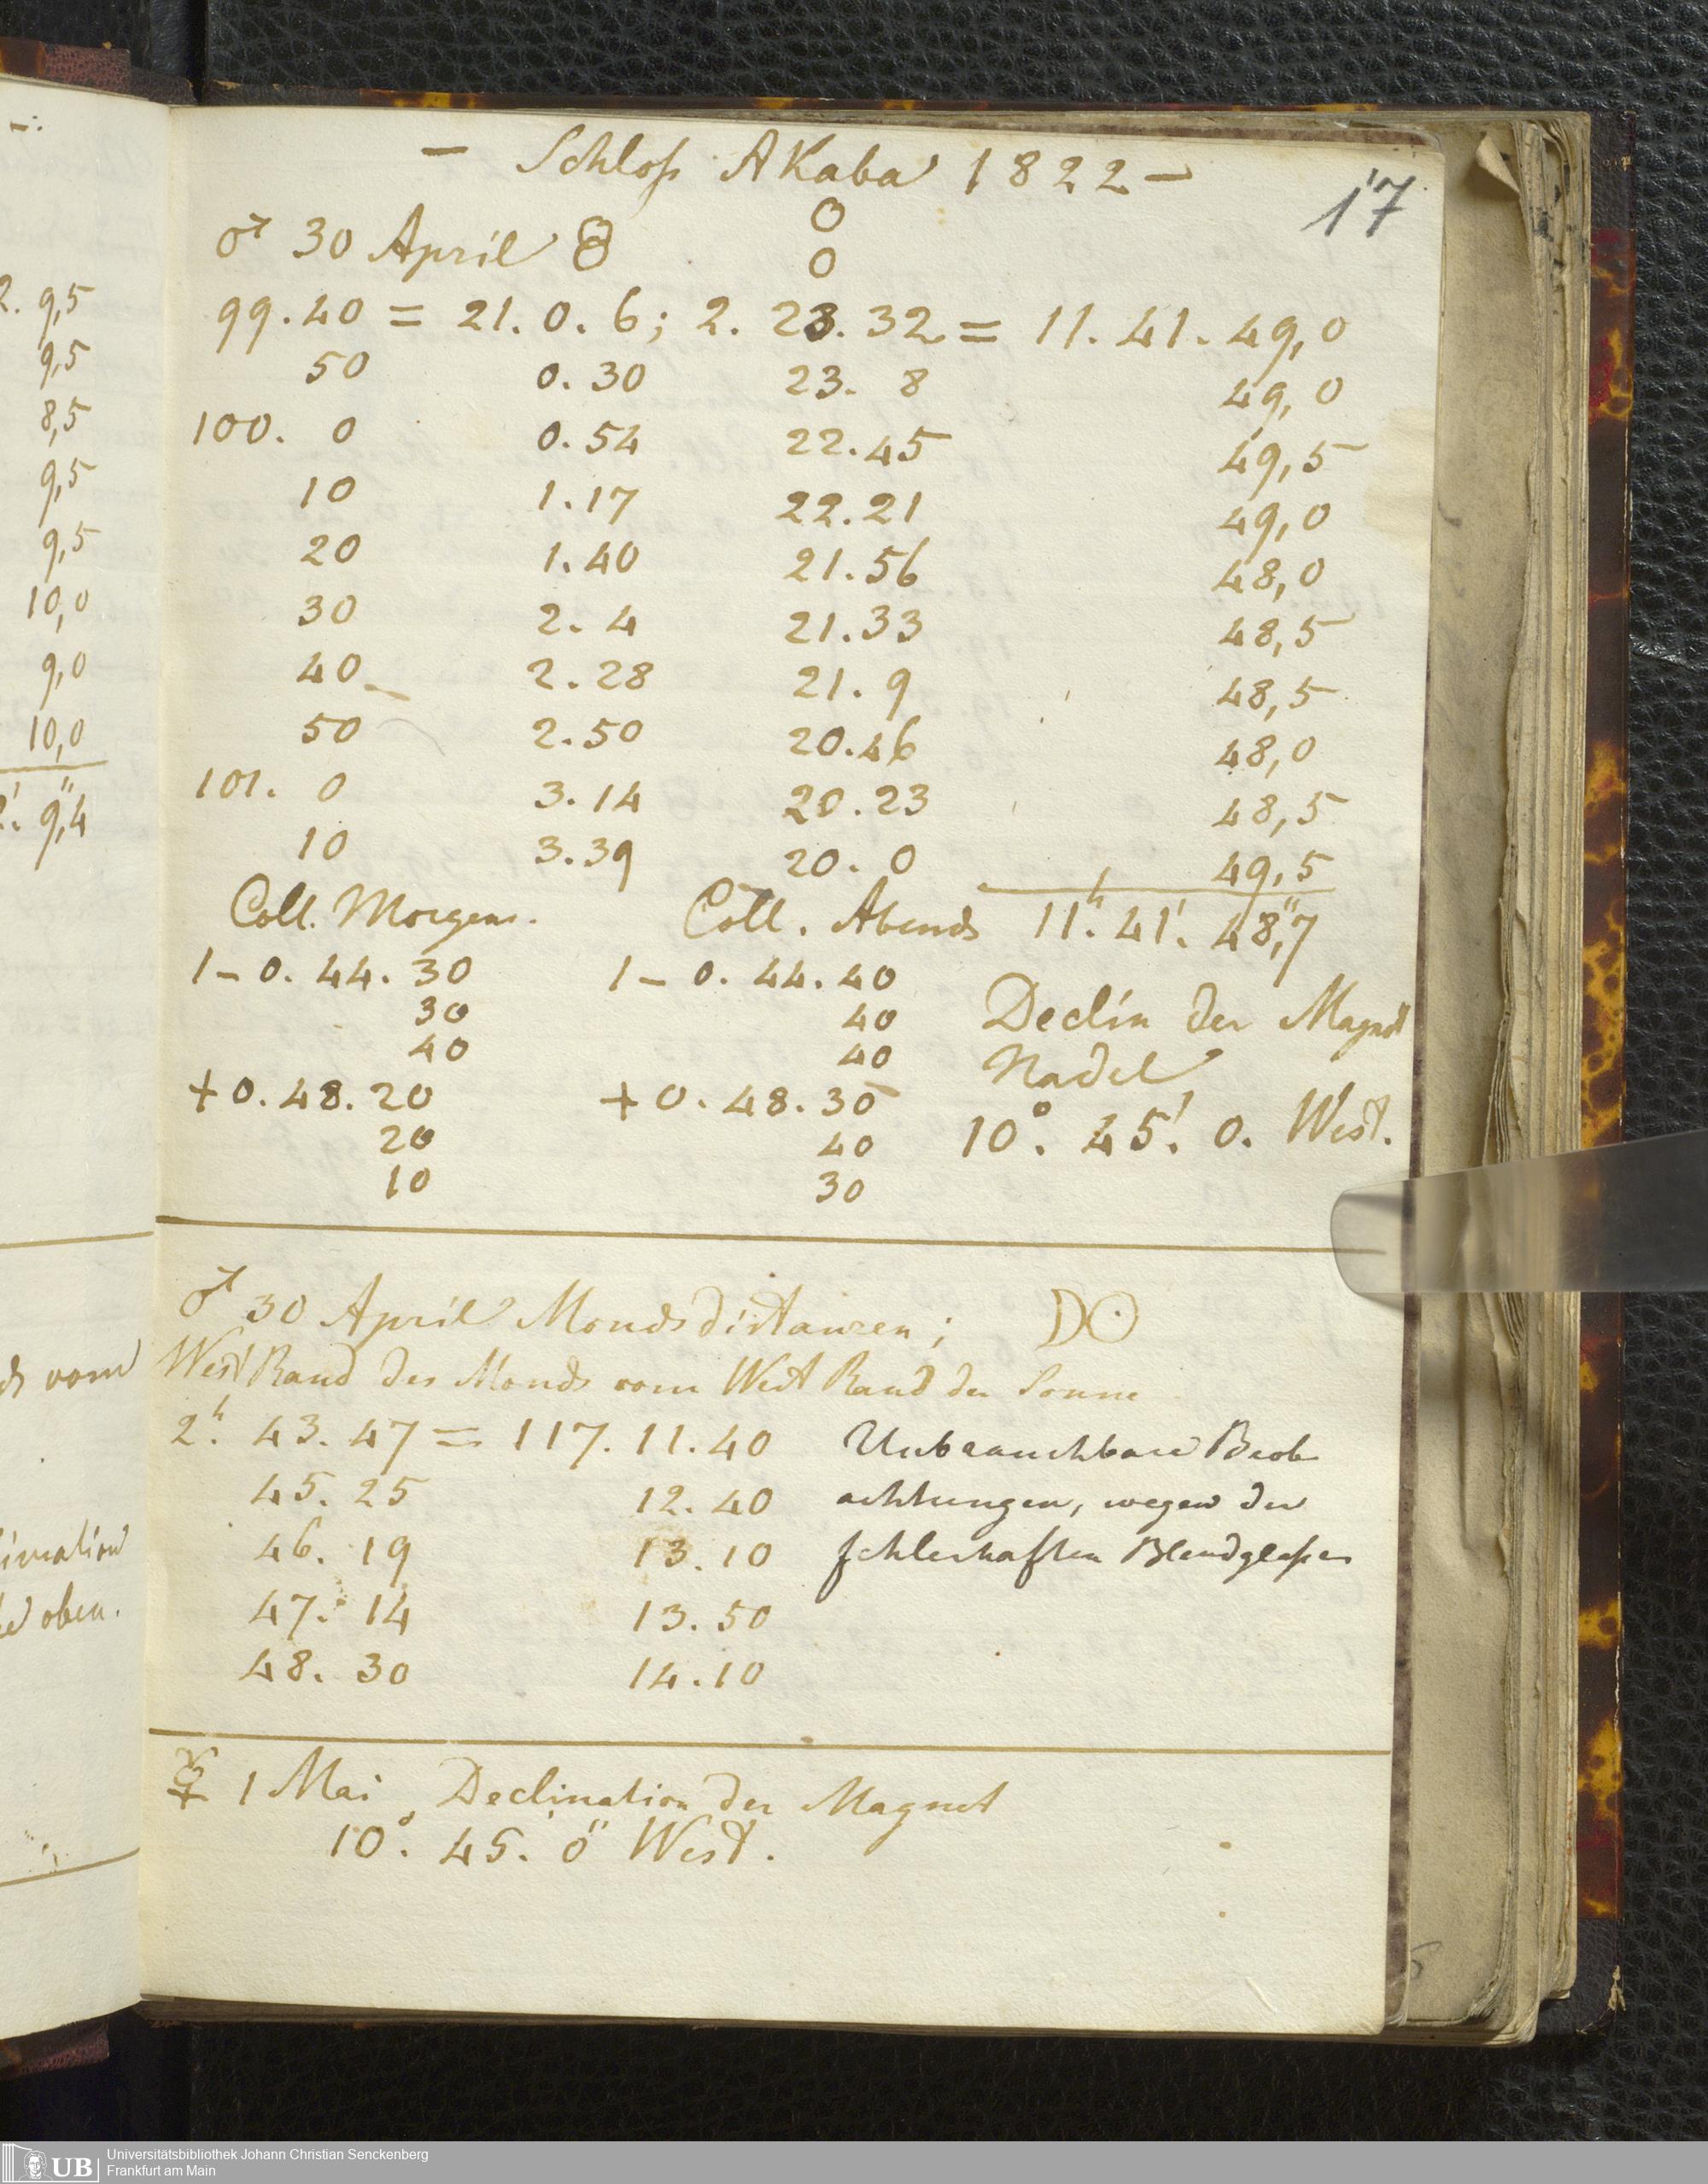 — Schloß AKaba 1822 —
17
♂ 30 April 8 0
0
99.40 = 21.0.6; 2.23.32 = 11.41.49,0
50 0.30 23. 8 49,0
100. 0 0.54 22.45 49,5
10 1.17 22.21 49,0
20 1.40 21.56 48,0
30 2. 4 21.33 48,5
40 2.28 21. 9 48,5
50 2.50 20.46 48,0
101. 0 3.14 20.23 48,5
10 3.39 20. 0 49,5
Coll. Morgens. Coll. Abends 11.h 41.' 48,"7
1– 0.44.30 1– 0.44.40
30 40 Declin der Magnet
40 40 Nadel
+0.48.20 +0.48.30
20 40 10.° 45.' 0. West.
10 30
♂ 30 April Mondsdistanzen; ☽☉
West Rand des Monds vom West Rand der Sonne
2.h 43.47 = 117.11.40 Unbrauchbare Beob
45.25 12.40 achtungen, wegen der
46.19 13.10 fehlerhaften Blendglaßer
47.14 13.50
48.30 14.10
☿ 1 Mai Declination der Magnet
10.° 45.' 0" West.
2. 9,5
9,5
8,5
9,5
9,5
10,0
9,0
10,0
2.' 9,"4
ds vom
oben.
UB
Universitätsbibliothek Johann Christian Senckenberg
Frankfurt am Main